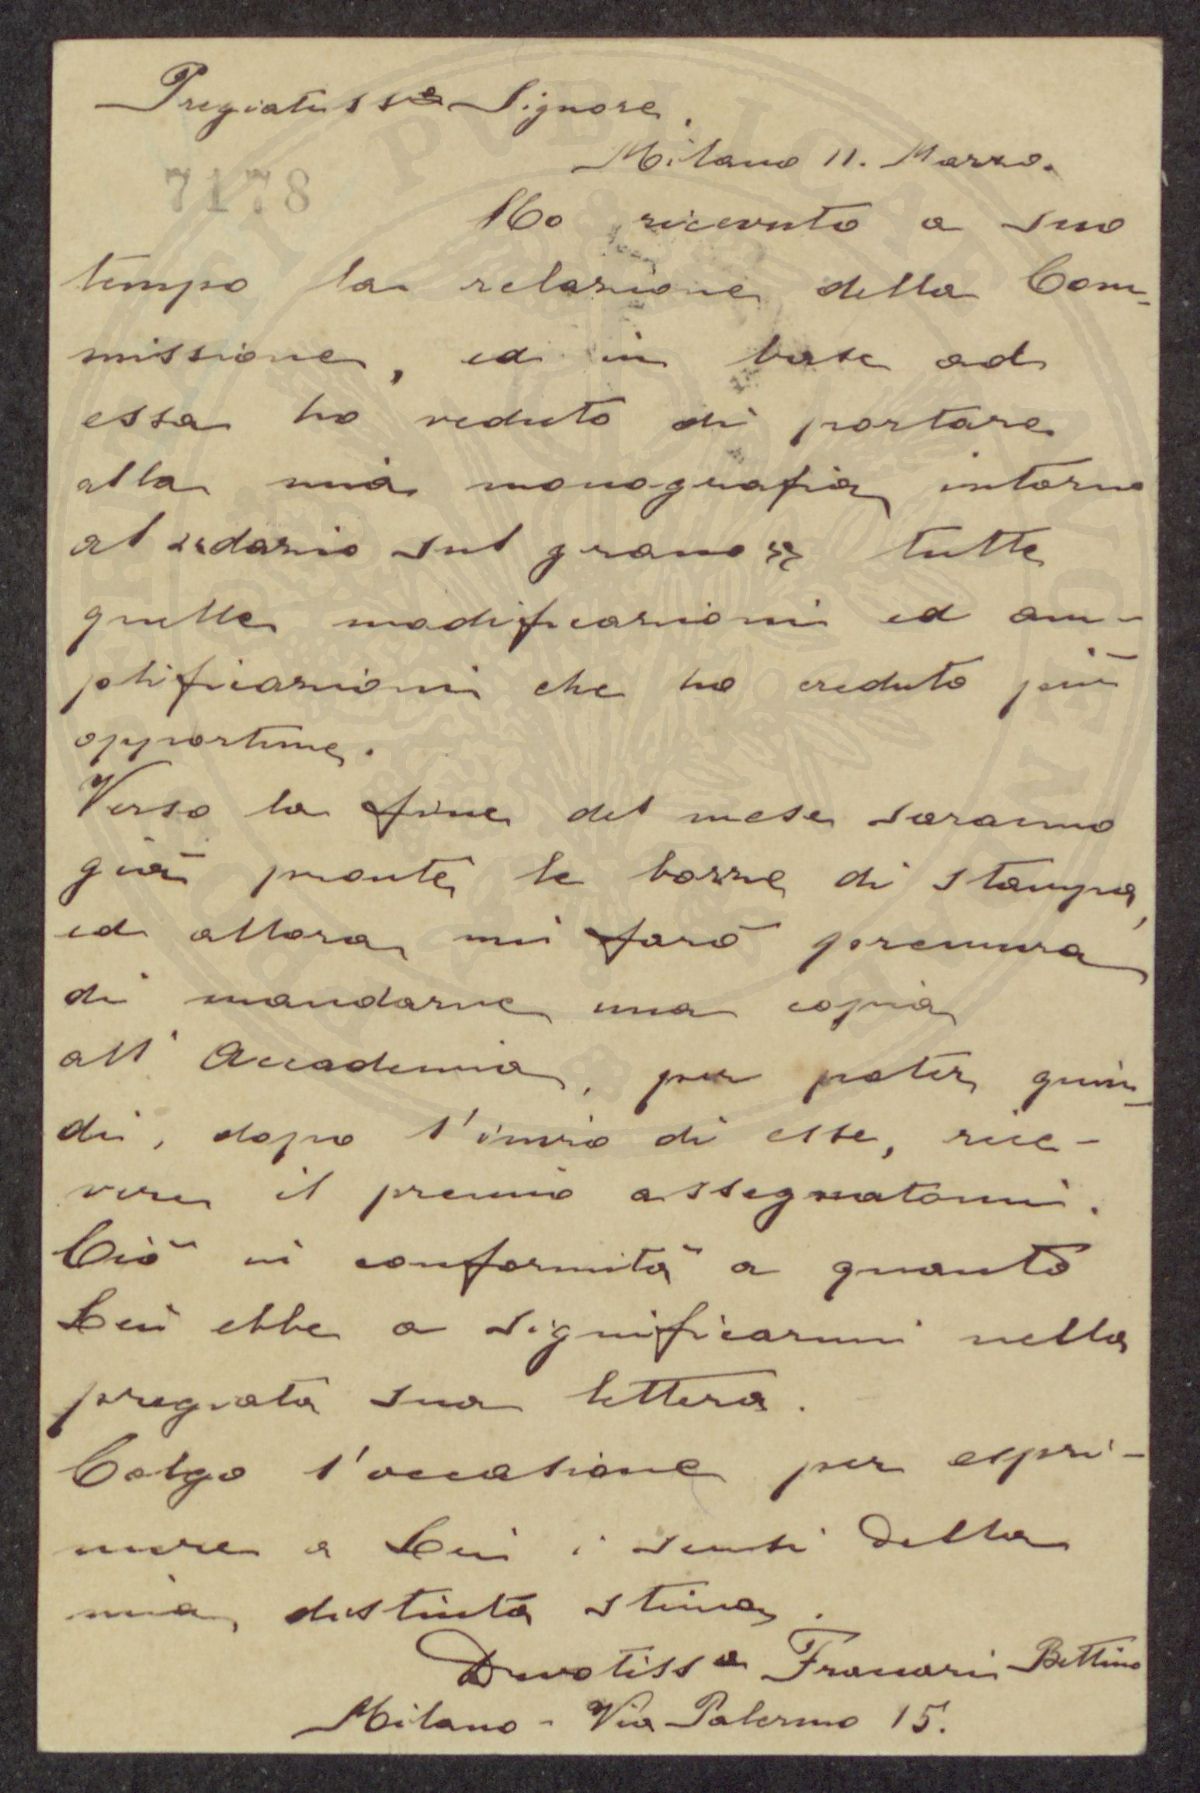 Pregiatiss.o Signore.
Milano 11. Marzo.
7178
Ho ricevuto a suo
tempo la relazione della Com-
missione, ed in base ad
essa ho veduto di portare
alla mia monografia intorno
al «dazio sul grano» tutte
quelle modificazioni ed am-
plificazioni che ho creduto più
opportune.
Verso la fine del mese saranno
già pronte le bozze di stampa,
ed allora mi farò premura
di mandarne una copia
all'Accademia, per poter quin-
di, dopo l'invio di esse, rice-
vere il premio assegnatomi.
Ciò in conformità a quanto
Lei ebbe a significarmi nella
pregiata sua lettera.
Colgo l'occasione per espri-
mere a Lei i sensi della
mia distinta stima.
Devotiss.o Bettino
Milano - Via Palermo 15.